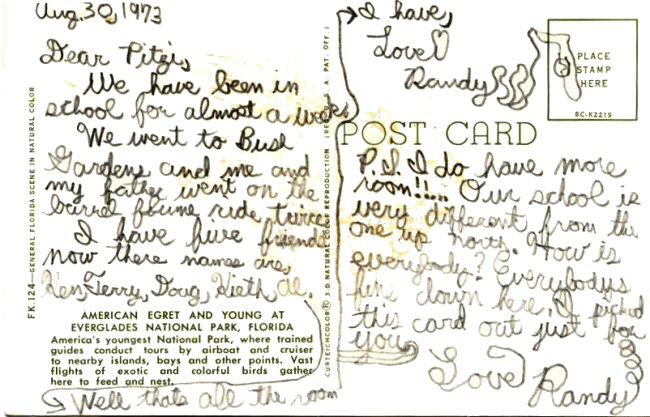 Aug. 30, 1973
Dear Pitzi,
We have been in
school for almost a week
We went to Bush
Gardens and me and
my father went on the
barrel floume ride twice
I have five friends
now there names are,
Ken, Terry, Doug, Kieth, Al.
AMERICAN EGRET AND YOUNG AT
EVERGLADES NATIONAL PARK, FLORIDA
America's youngest National Park, where trained
guides conduct tours by airboat and cruiser
to nearby islands, bays and other points. Vast
flights of exotic and colorful birds gather
here to feed and nest.
Well thats all the room
I have,
Love
Randy
POST CARD
P.S. I do have more
room!!... Our school is
very different from the
one up north. How is
everybody? Everybodys
fine down here. I picked
this card out just for
you
Love
Randy
PLACE
STAMP
HERE
BC-K2215
FK 124—GENERAL FLORIDA SCENE IN NATURAL COLOR
CURTEICHCOLOR® 3-D NATURAL COLOR REPRODUCTION (REG. U. S. A. PAT. OFF.)